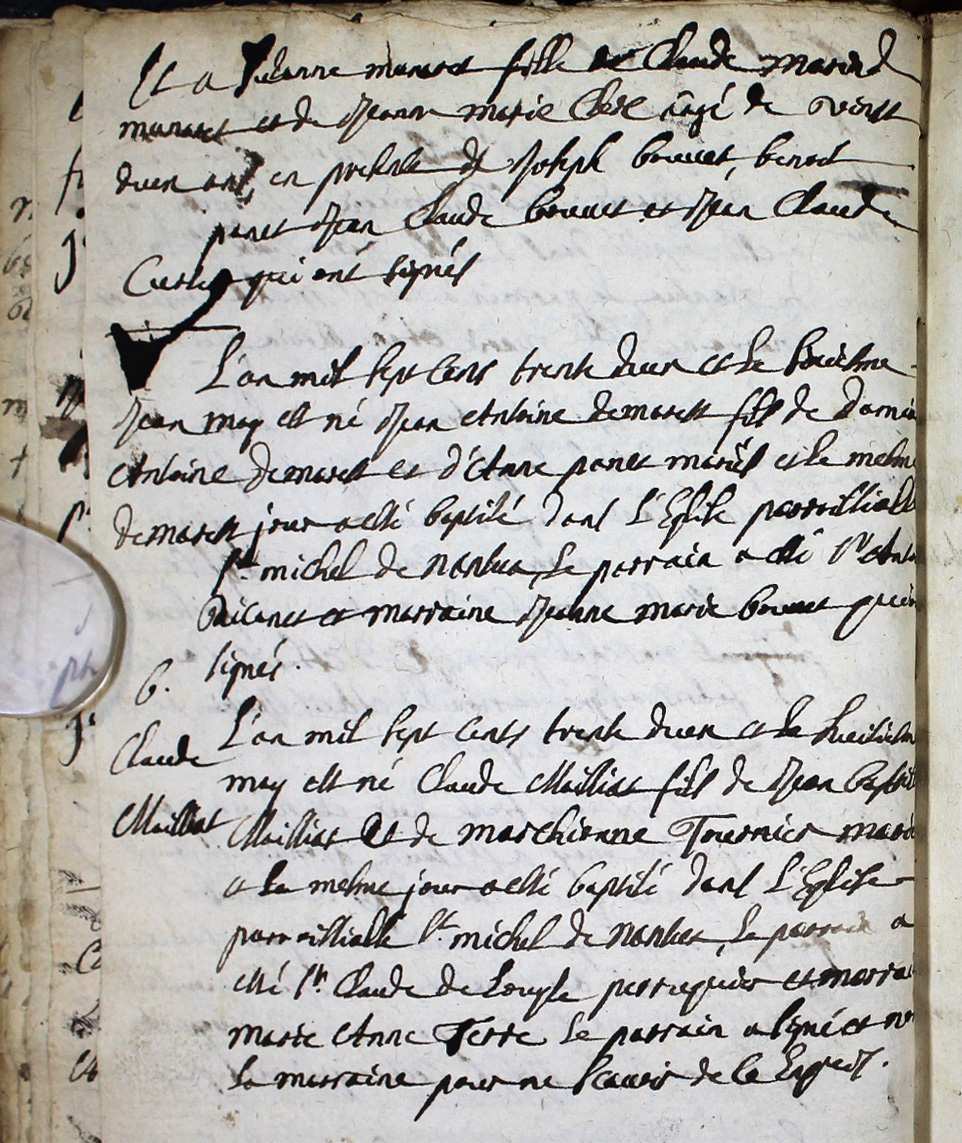 Et a Suzanne munaret fille de Claude Marie
munaret et de Jeanne marie Clerc âgé de vingt
deux ans, en presence de Joseph bouuet, benoit
panet Jean Claude bouuet et Jean Claude
qui ont signés
L'an mil sept cents trente deux et le
Jean may est né Jean Antoine demarest fils de
Antoine demarest et d'Anne panet mariés et le mesme
demarest jour a esté baptisé dans L'Eglise parroissialle
St. michel de nantua, Le parrain a esté Sr Anto
et marraine Jeanne marie bouuet qui
signés.
b.
L'an mil sept cents trente deux et le huitiesm
Claude
may est né Claude Mailliat fils de Jean baptis
Mailliat
Mailliat Et de Tournier mari
et le mesme jour a esté baptisé dans L'Eglise
parroissialle St. michel de nantua, Le parrain a
esté Sr. Claude de perruquier et marrai
marie Anne Terre Le parrain a signé et no
la marraine pour ne scauoir de ce Enquis.